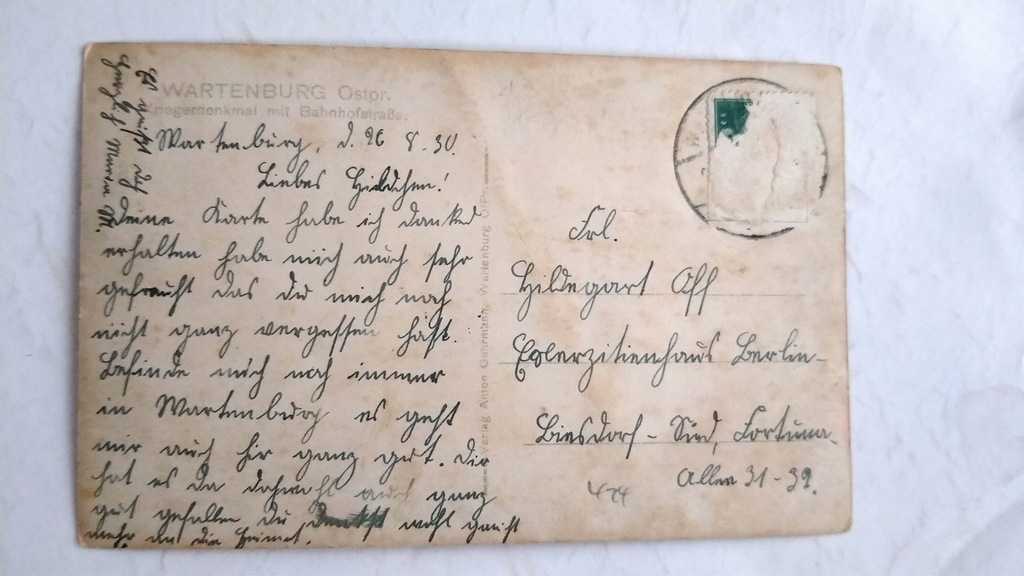 WARTENBURG Ostpr.
Kriegerdenkmal mit Bahnhofstraße.
Wartenburg, d. 26 8.30.
Liebes Hildchen!
Deine Karte habe ich dankd
erhalten habe mich auch sehr
gefreuht das du mich noch
nicht ganz vergessen hast.
Befinde mich noch immer
in Wartenburg es geht
mir auch hir ganz gut. Dir
hat es da doch auch ganz
gut gefallen du denkst wohl garnicht
mehr an die Heimat.
Es grüßt dich
herzlich
Verlag Anton Gehrmann, Wartenburg O/Pr.
Frl.
Hildegart Off
Exlerzitienhaus Berlin-
Biesdorf - Süd, Fortuna-
Allee 31-32.